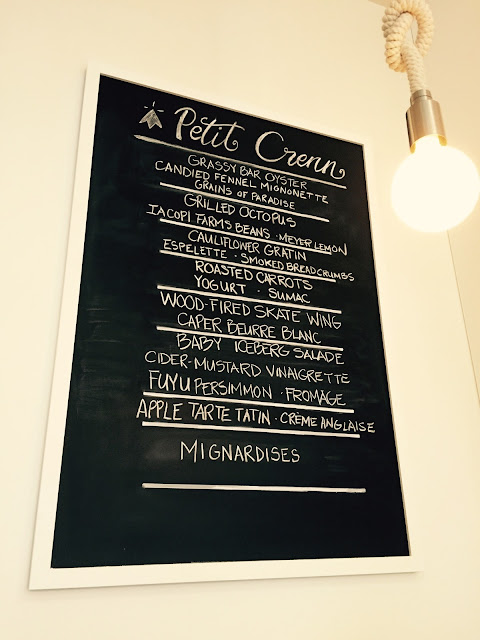 Petit Crenn
GRASSY BAR OYSTER
CANDIED FENNEL MIGNONETTE
GRAINS OF PARADISE
GRILLED OCTOPUS
IACOPI FARMS BEANS · MEYER LEMON
CAULIFLOWER GRATIN
ESPELETTE · SMOKED BREADCRUMBS
ROASTED CARROTS
YOGURT · SUMAC
WOOD-FIRED SKATE WING
CAPER BEURRE BLANC
BABY ICEBERG SALADE
CIDER-MUSTARD VINAIGRETTE
FUYU PERSIMMON · FROMAGE
APPLE TARTE TATIN · CRÈME ANGLAISE
MIGNARDISES